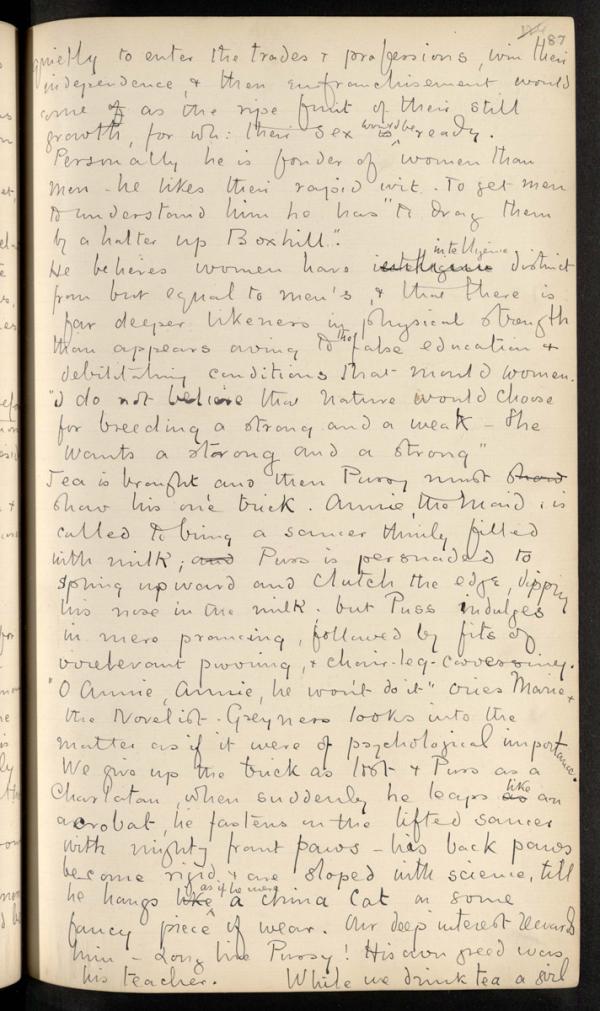 87
quietly to enter the trades & professions, win their
independence, & then enfranchisement would
come as the ripe fruit of their still
growth, for wh: their sex would be ready.
Personally he is fonder of women than
men - he likes their rapid wit. To get men
to understand him he has "to drag them
by a halter up Boxhill".
He believes women have intelligence intelligence distinct
from but equal to men's, & that there is
far deeper likeness in physical strength
than appears owing to the false education &
debilitating conditions that mould women.
"I do not believe that nature would choose
for breeding a strong and a weak - She
wants a strong and a strong"
Tea is brought and then Pussy must show
show his one trick. Annie, the Maid, is
called to bring a saucer thinly filled
with milk; and Puss is persuaded to
spring upward and clutch the edge, dipping
his nose in the milk. but Puss indulges
in mere prancing, followed by fits of
irrelevant purring, & chair-leg-caressing.
"O Annie, Annie, he won't do it" cries Marie &
the Novelist - Greyness looks into the
matter as if it were of psychological importance.
We give up the trick as lost & Puss as a
Charlatan, when suddenly he leaps as like an
acrobat, he fastens on the lifted saucer
with mighty front paws - his back paws
become rigid & are sloped with science, till
he hangs like as if he were a china Cat on some
fancy piece of wear. Our deep interest rewards
him - Long live Pussy! His own greed was
his teacher. While we drink tea a girl